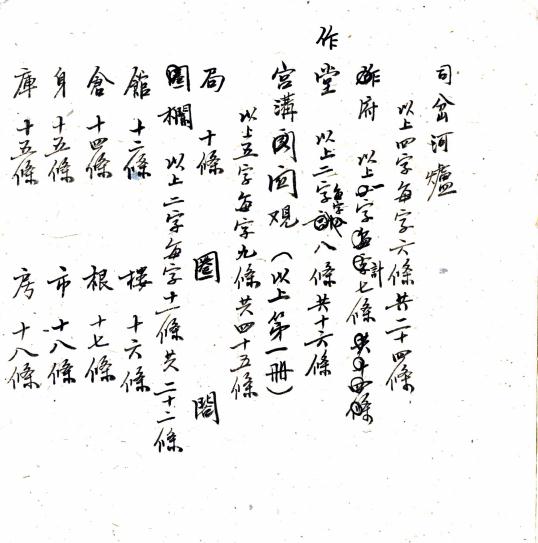 司岔河爐
以上四字每字六條共二十四條
府 以上一字計七條
作堂 以上二字每字八條共十六條
宮溝園向观(以上第一冊)
以上五字每字九條共四十五條
局 十條 圈 閣
圍欄 以上二字每字十一條共二十二條
館 十二條 樓 十六條
倉 十四條 根 十七條
身 十五條 市 十八條
庫 十五條 房 十八條